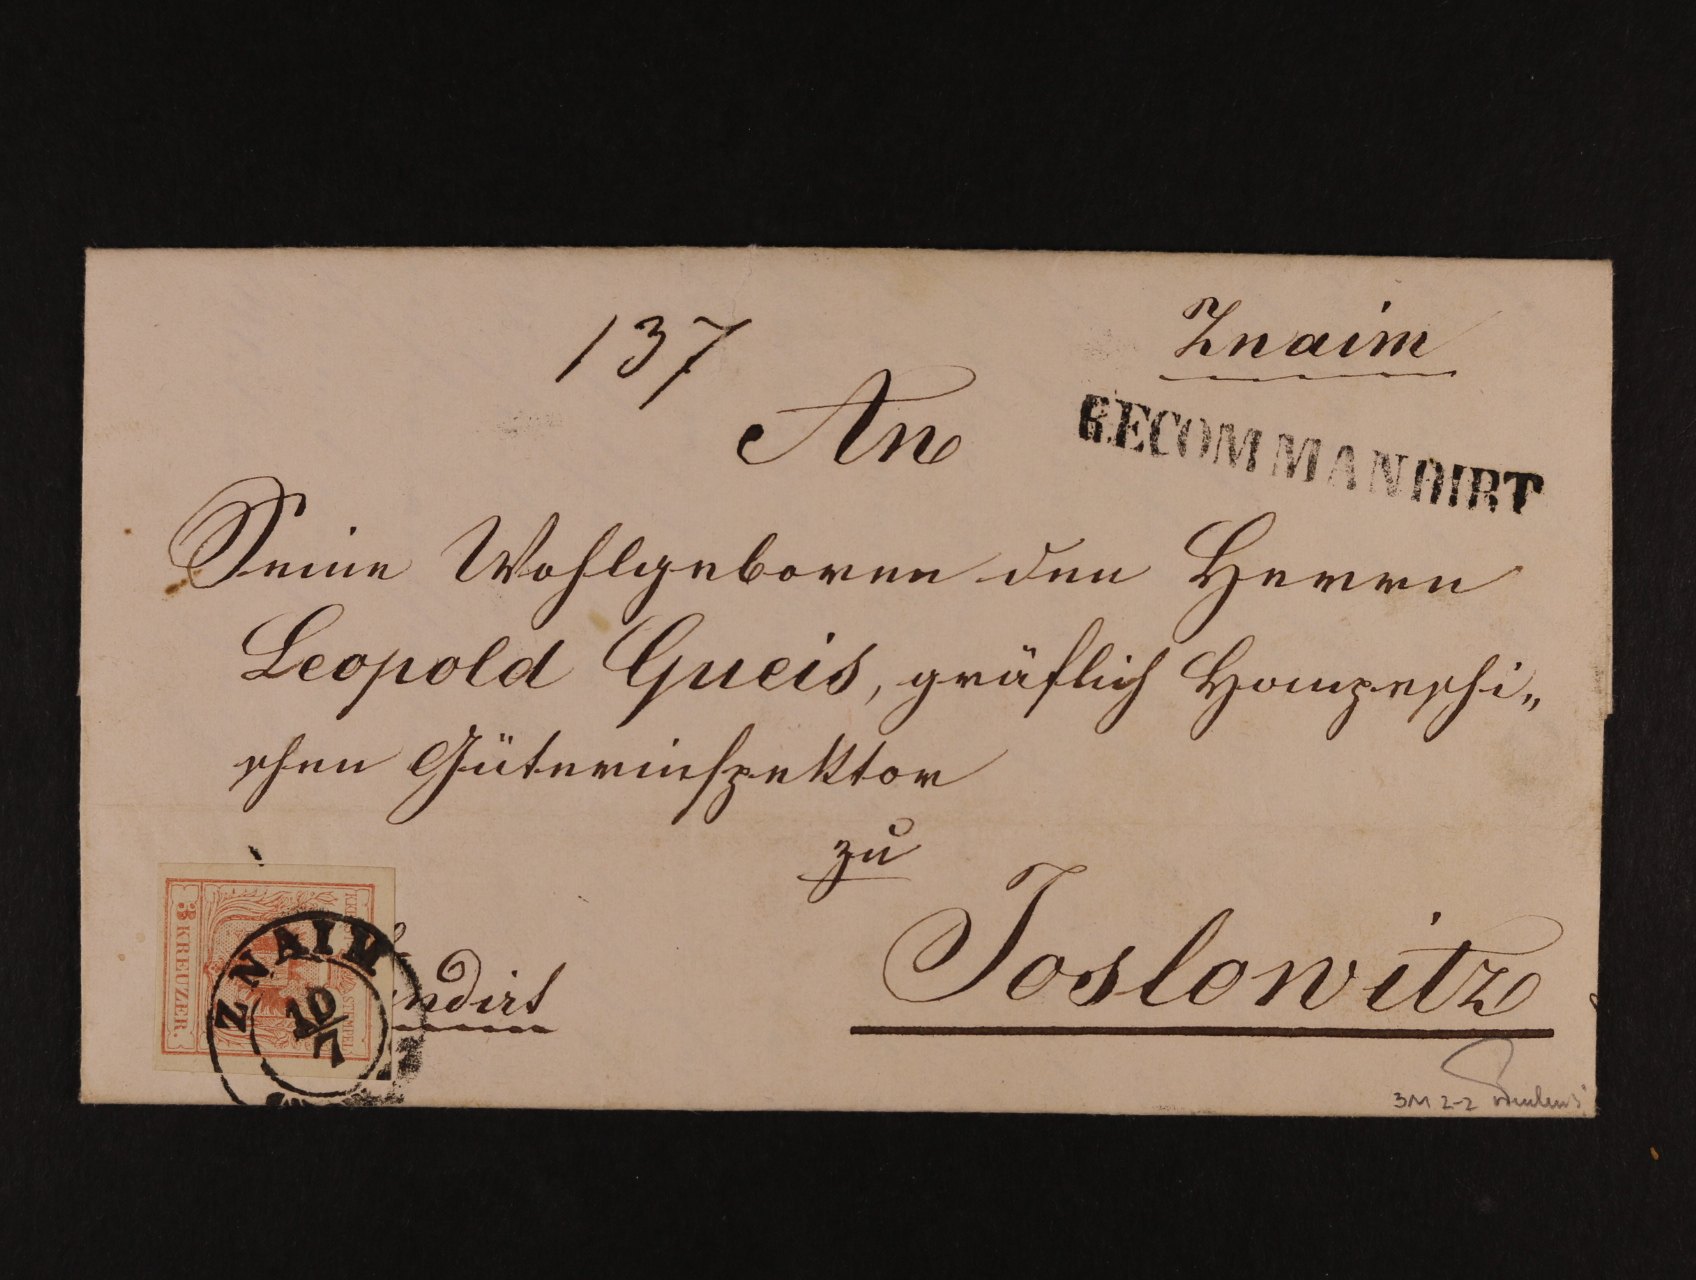 137
Znaim
An
RECOMMANDIRT
Seine Wohlgeboren den Herrn
Leopold Gueis, gräflich Hompeschi„
schen Güterinspektor
zu
Joslowitz
ndirt
3 KREUZER.
KK POST-STEMPEL
ZNAIM
10/7
3M 2-2